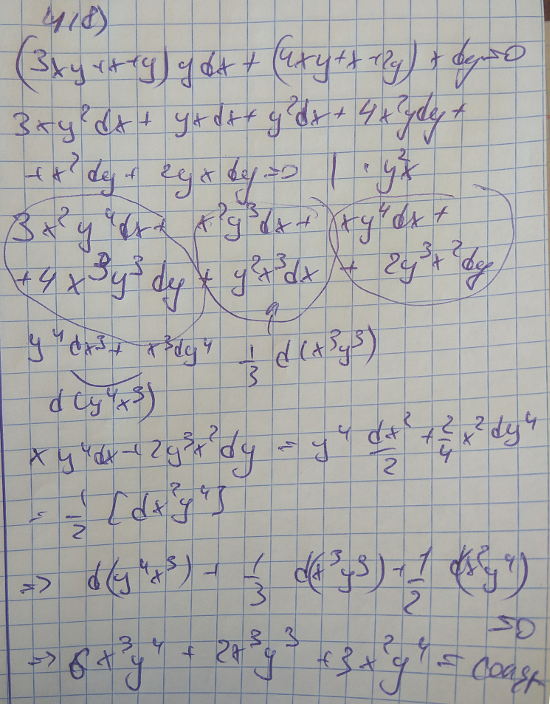 4(8)
(3xy+x+y) y dx + (4xy+x+2y) x dy = 0
3xy² dx + yx dx + y² dx + 4x² y dy +
+ x² dy + 2yx dy = 0 | · y²x
3x²y⁴ dx + x²y³ dx + xy⁴ dx +
+ 4x³y³ dy + y²x³ dx + 2y³x² dy
y⁴ dx³ + x³ dy⁴ 1/3 d(x³y³)
d(y⁴x³)
xy⁴ dx + 2y³x² dy = y⁴ dx²/2 + 2/4 x² dy⁴
= 1/2 [dx²y⁴]
=> d(y⁴x³) + 1/3 d(x³y³) + 1/2 d(x²y⁴)
=0
=> 6x³y⁴ + 2x³y³ + 3x²y⁴ = const